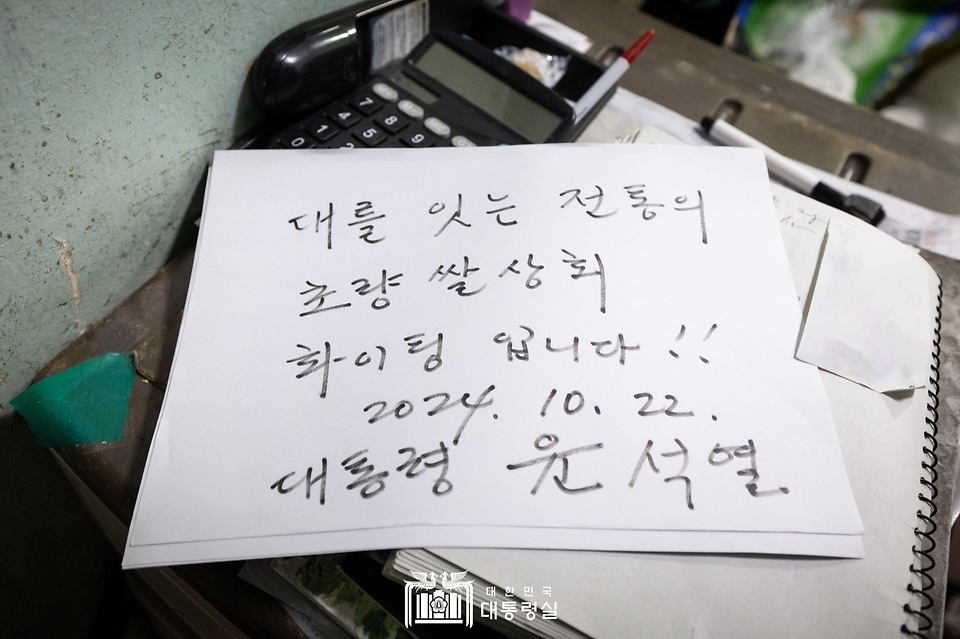 7
8
4
5
9
1
0
대를 잇는 전통의
초량쌀상회
화이팅 입니다!!
2024. 10. 22.
대통령 윤석열
대한민국
대통령실